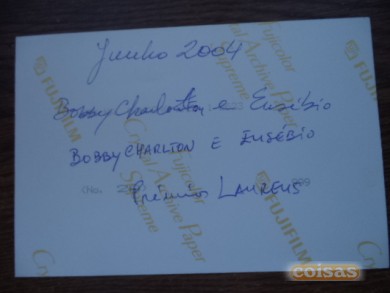 Junho 2004
Bobby Charlton e Eusébio
BOBBY CHARLTON E EUSÉBIO
Prémios LAUREUS
Fujicolor
Crystal Archive Paper
Supreme
FUJIFILM
Fujicolor
Crystal Archive Paper
Supreme
FUJIFILM
coisas